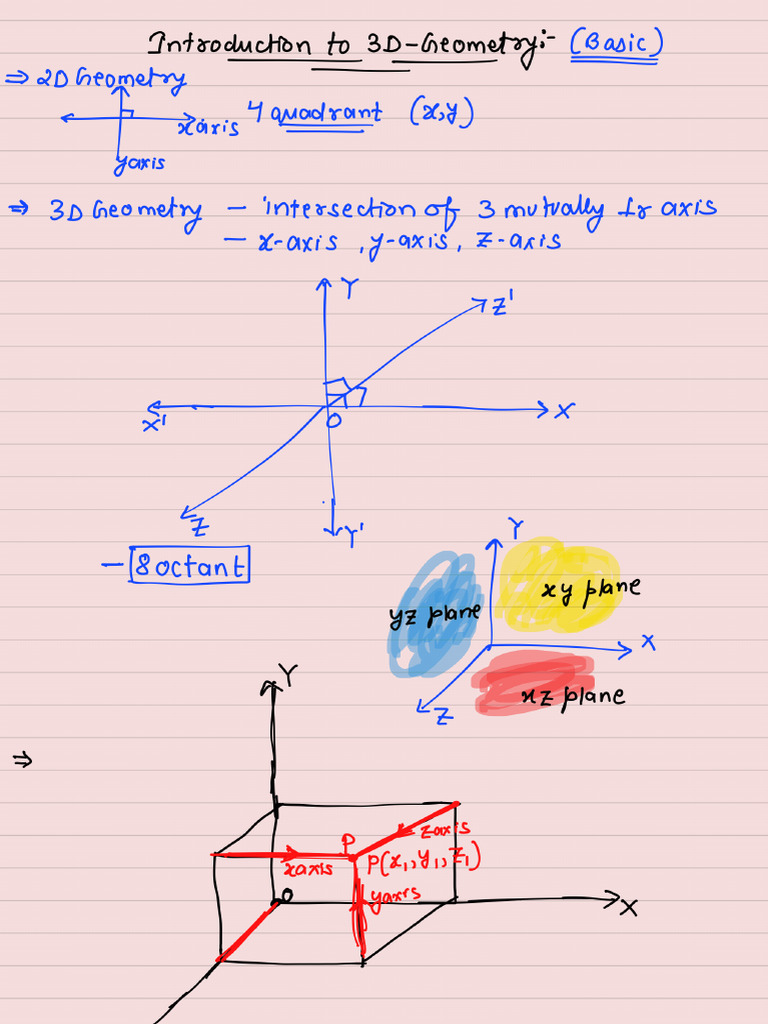 Introduction to 3D-Geometry:- (Basic)
⇒ 2D Geometry
4 quadrant (x,y)
x axis
y axis
⇒ 3D Geometry - intersection of 3 mutually ⊥r axis
- x-axis, y-axis, z-axis
Y
Z'
X'
O
X
Z
Y'
- 8 octant
Y
xy plane
yz plane
X
xz plane
Z
Y
⇒
P
z axis
x axis
P(x₁, y₁, z₁)
y axis
O
X